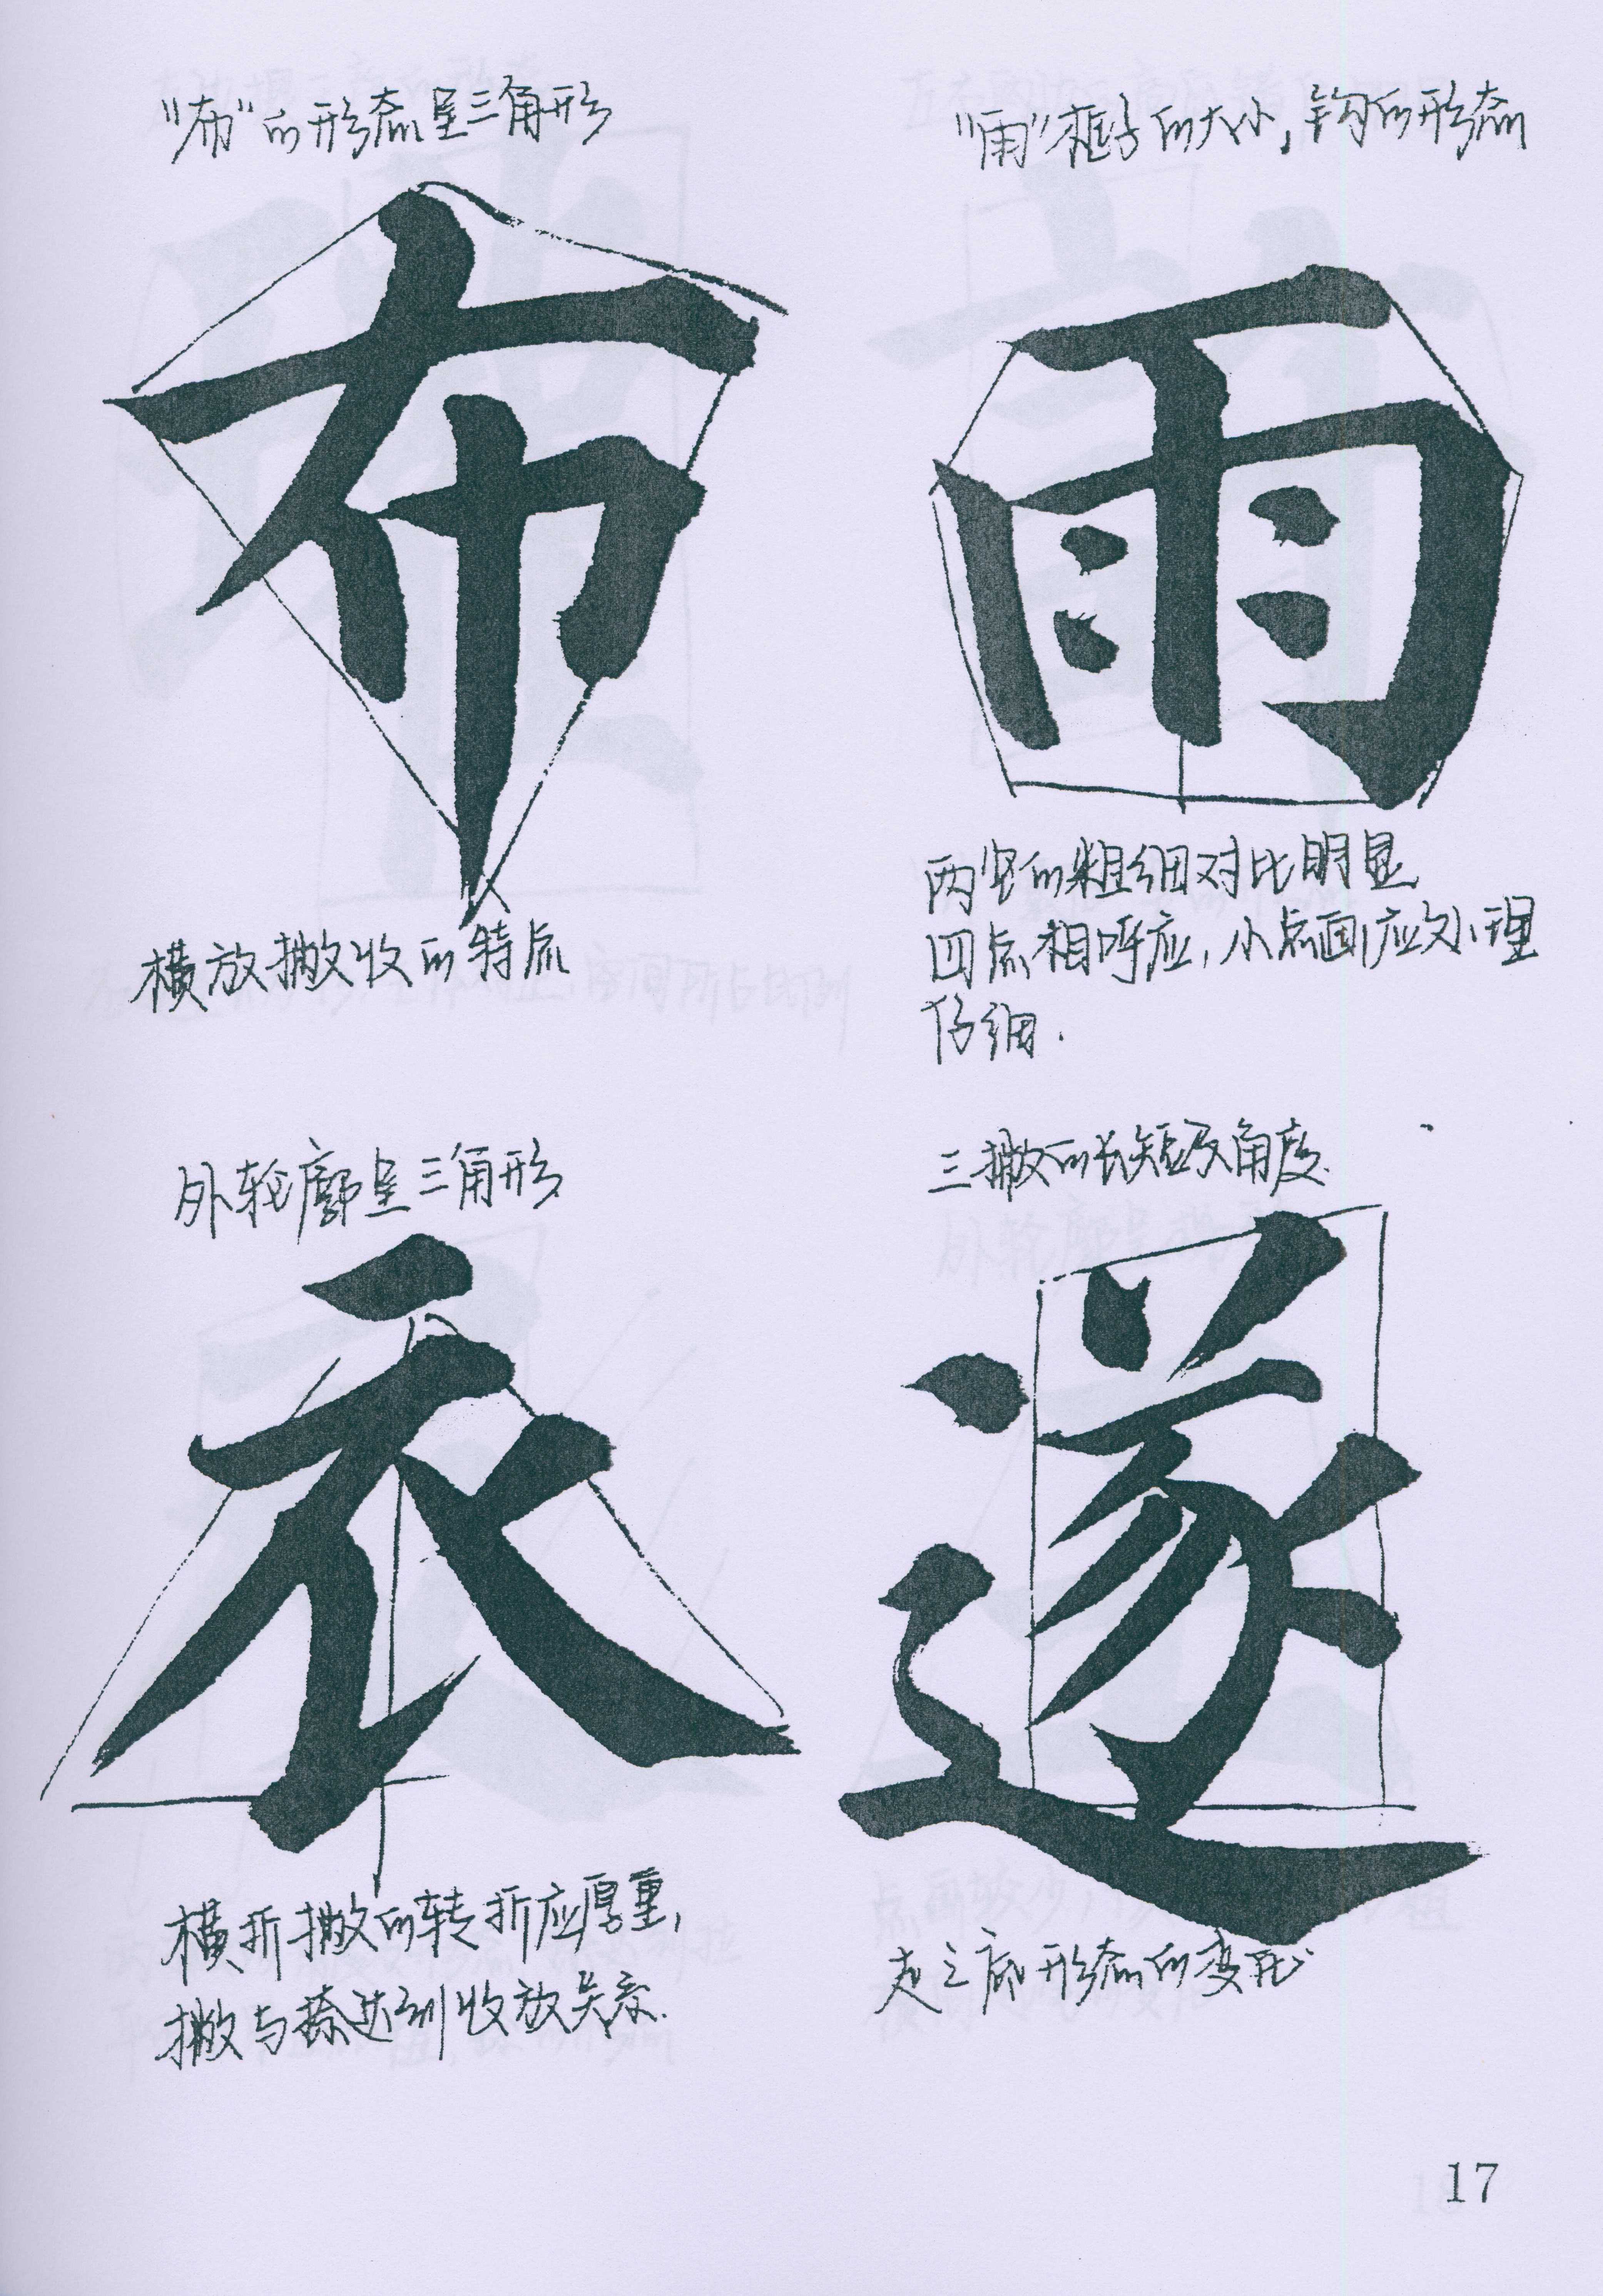 “布”的形态呈三角形
布
横放撇收的特点
“雨”框子的大小，钩的形态
雨
两竖的粗细对比明显
四点相呼应，小点画应处理
仔细．
外轮廓呈三角形
衣
横折撇的转折应厚重，
撇与捺达到收放关系．
三撇的长短及角度．
遂
走之底形态的变形
17